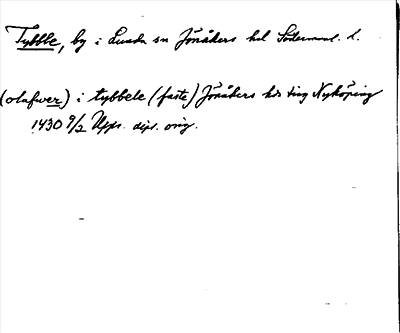 Tybble, by i Lunda sn Jönåkers hd Södermanl. l.
(olafwer) i tybbele (faste) Jönåkers hds ting Nyköping
1430 9/2 Upps. dipl. orig.